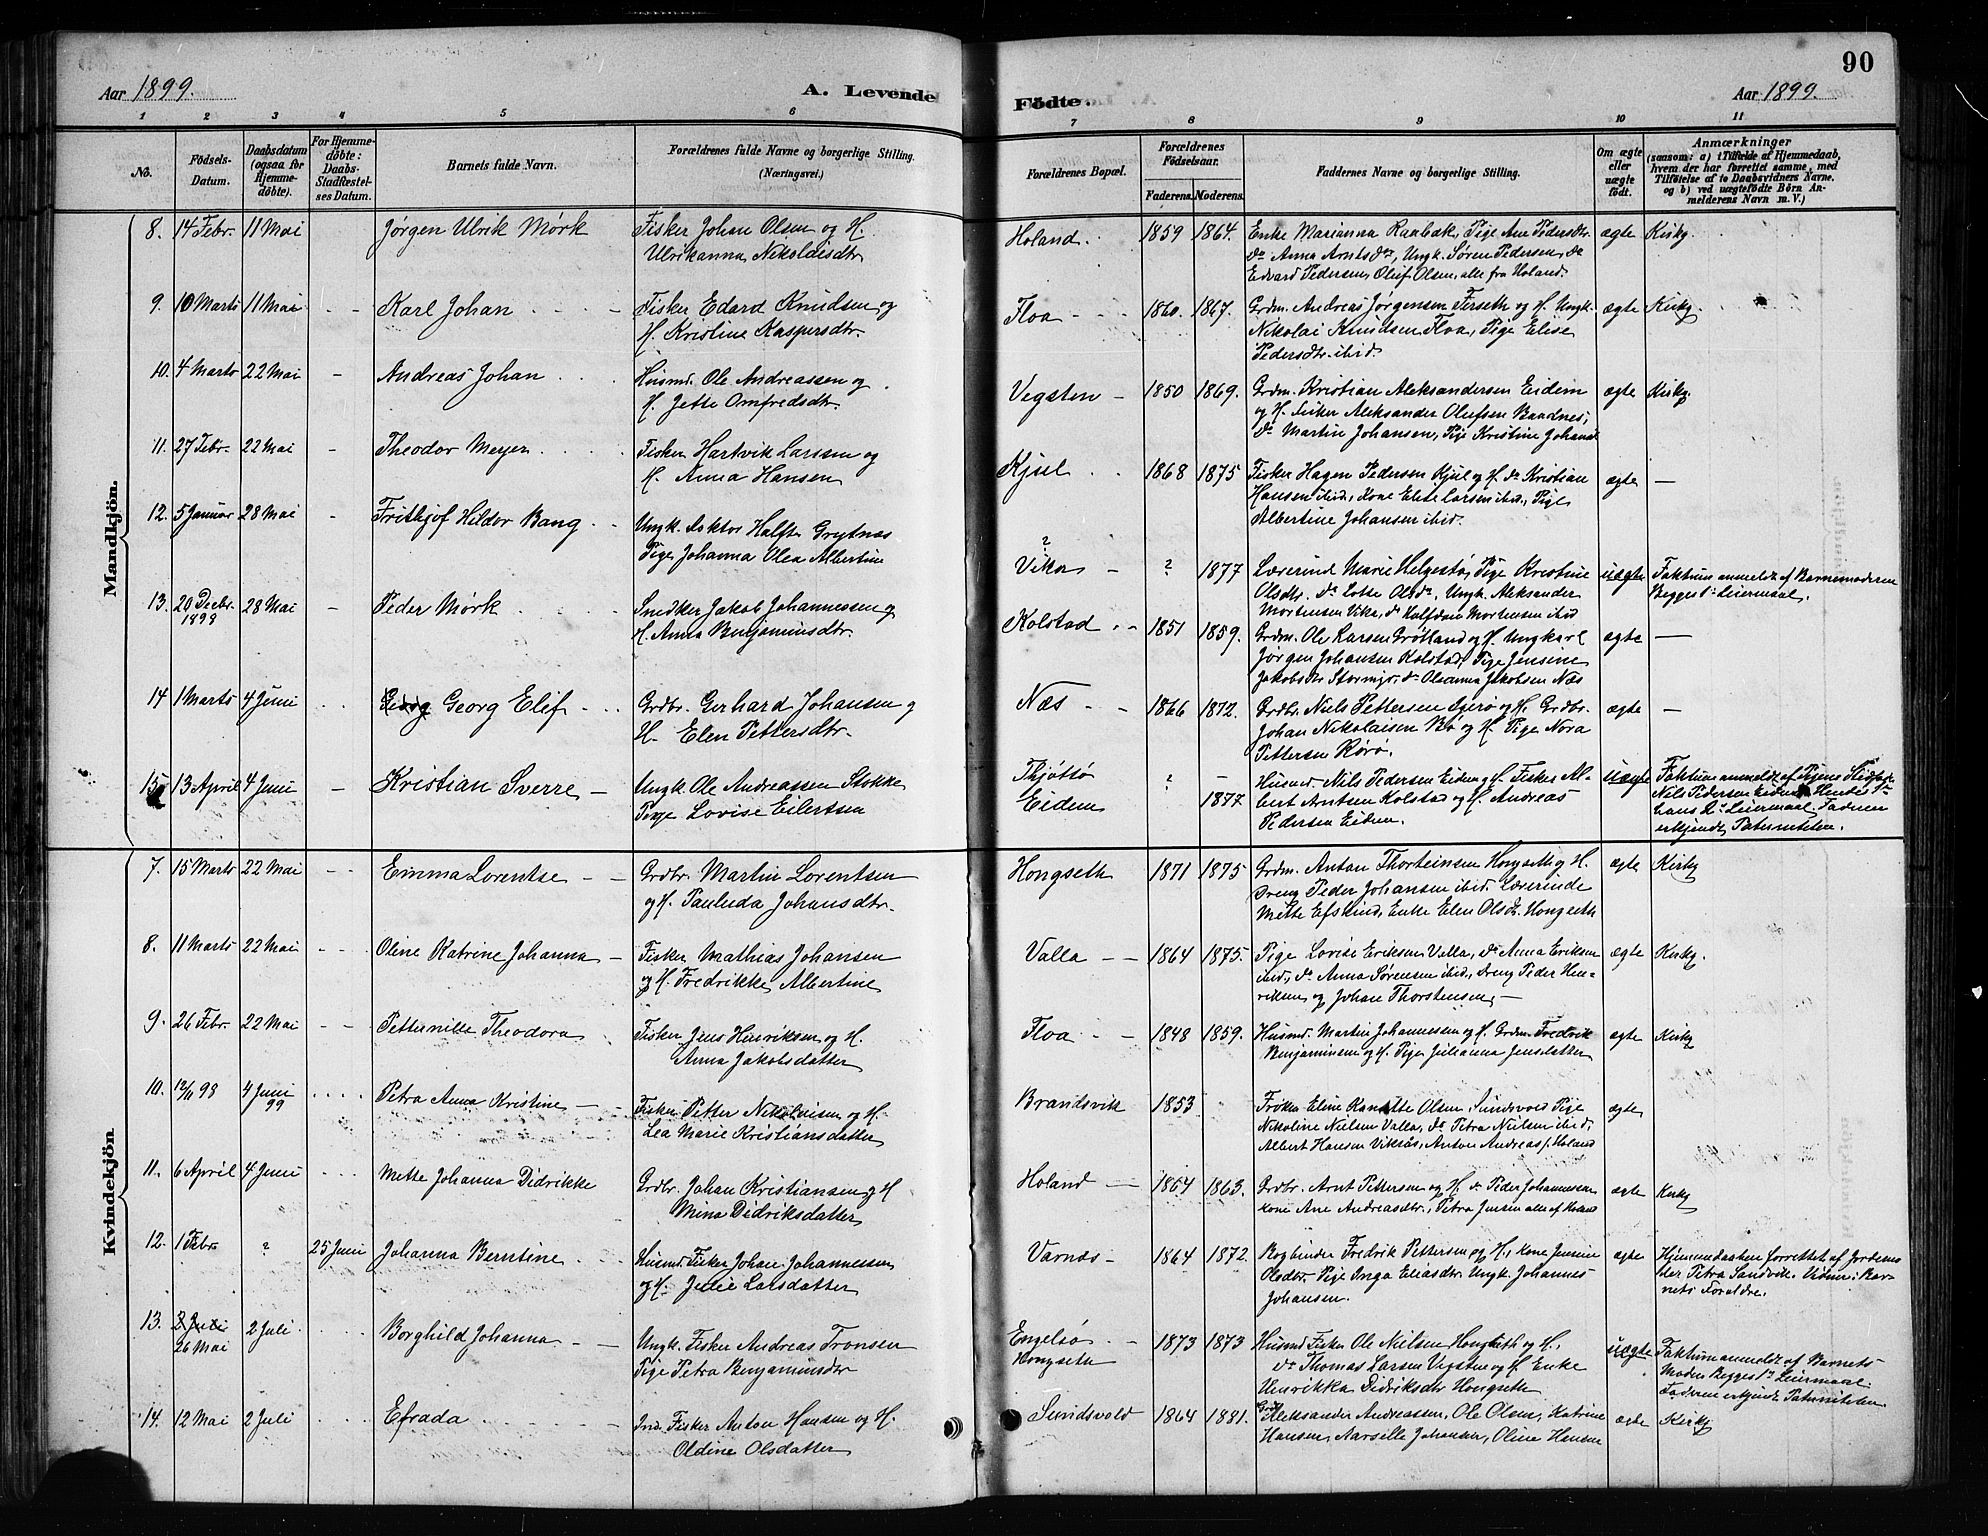 Aar 1899.
A. Levende
1 2 3 4 5 6
No.
Födsels-Datum.
Daabsdatum (ogsaa for Hjemmedöbte).
For Hjemmedöbte: Daabs-Stadfæstelses Datum.
Barnets fulde Navn.
Forældrenes fulde Navne og borgerlige Stilling.
(Næringsvei.)
Mandkjön.
8. 14 Febr. 11 Mai Jørgen Ulrik Mørk Fisker Johan Olsen og H.
Ulrikanna Nikolaisdtr
9. 10 Marts 11 Mai - - Karl Johan Fisker Edard Knudsen og
H. Kristine Kaspersdtr.
10. 4 Marts 22 Mai - Andreas Johan Husmd. Ole Andreassen og
H. Jette Omfredsdtr.
11. 27 Febr. 22 Mai - Theodor Meyer Fisker Hartvik Larssen og
H. Anna Hansen
12. 5 Januar 28 Mai - Frithjof Hildor Bang Ungk. Halft Grytnæs
Pige Johanna Olea Albertine
13. 20 Decbr. 28 Mai - Peder Mørk Snedker Jakob Johannessen og
1898 H. Anna Benjaminsdtr.
14 1 Marts 4 Juni Georg Elif Grdbr. Gerhard Johansen og
H. Elen Pettersdtr.
15 13 April 4 Juni - Kristian Sverre - Ungk. Ole Andreassen Stokke
Pige Lovise Eilertsen
Kvindekjön.
7. 15 Marts 22 Mai - - Emma Lorentse - - Grdbr. Martin Lorentsen
og H. Pauluda Johansdtr.
8. 11 Marts 22 Mai - - Oline Katrine Johanna - Fisker Mathias Johansen
og H. Fredrikke Albertine
9. 26 Febr. 22 Mai - - Petternille Theodora Fisker Jens Henriksen og H.
Anna Jakobsdatter
10. 12/11 98 4 Juni 99 Petra Anna Kristine - Fisker Petter Nikolaisen og H.
Lea Marie Kristiansdatter
11. 6 April 4 Juni Mette Johanna Didrikke Grdbr. Johan Kristiansen og H
Mina Didriksdatter
12. 1 Febr ? 25 Juni Johanna Berntine Husmd. Fisker Johan Johannessen
og H. Julie Larsdatter
13. 26 Mai 2 Juli Borghild Johanna - - Ungk. Fisker Andreas Tronsen
Pige Petra Benjaminsdtr
14. 12 Mai 2 Juli Efrada Ind. Fisker Anton Hansen og H.
Oldine Olsdatter
90
Födte.
Aar 1899.
7 8 9 10 11
Forældrenes Bopæl.
Forældrenes Födselsaar.
Faderens. Moderens.
Faddernes Navne og borgerlige Stilling.
Om ægte eller uægte födt.
Anmærkninger
(saasom: a) i Tilfælde af Hjemmedaab,
hvem der har forrettet samme, med
Tilföielse af to Daabsvidners Navne,
og b) ved uægtefödte Börn Anmelderens Navn m. V.)
Holand. 1859 1864. Enke Marianna Raabak, Pige Ane Pedersdtr. ægte Kirkg.
do Anna Arntsdtr, Ungk. Søren Pedersen, do
Edvard Pedersen, Oluf Olsen, alle fra Holand.
Floa - - - 1860. 1867. Grdm. Andreas Jørgensen Forseth og H. Ungk. ægte Kirkg.
Nikolai Knudsen Floa, Pige Elise
Pedersdtr. ibid.
Vegsten - 1850 1869. Grdm. Kristian Aleksandersen Eidem ægte Kirkg.
og H. Fisker Aleksander Olufsen Baadnes,
do Martin Johansen, Pige Kristine Johans
Kjul 1868 1875 Fisker Hagen Pedersen Kjul og H. do Kristian ægte -
Hansen ibid, Kone Elise Larsen ibid, Pige
Albertine Johansen ibid.
?
Vika - ? 1877 Lærerind Marie Helgestø, Pige Kristine uægte Faktum anmeldt af Barnemoderen
Olsdtr. do Lotte Olsdtr. Ungk. Aleksander Begges 1ste Leiermaal.
Mortensen Vika, do Halfdan Mortensen ibid
Kolstad 1851 1859. Grdm. Ole Larsen Grøtland og H. Ungkarl ægte -
Jørgen Johansen Kolstad, Pige Jensine
Jakobsdtr do Oleanna Jakobsen Næs
Næs - - 1866 1872. Grdbr. Niels Pettersen og H. Grdbr. ægte -
Johan Nikolaisen Bø og H. Pige Nora
Pettersen Rørø.
Thjøttø ? - Husmd. Nils Pedersen Eidem og H. Fisker Al- uægte Faktum anmeldt af Pigens Stedfar
Eidem 1877 bert Antsen Kolstad og H. Andreas Nils Pedersen Eidem Hendes 1ste
Pedersen Eidem. hans 2det Leiermaal. Faderen
erkjendt Paterniteten.
Hongseth 1871 1875 Grdm. Anton Thorteinsen Hongseth og H. ægte Kirkg
Dreng Peder Johansen ibid. Lærerinde
Mette Efskind, Enke Elen Olsdtr. Hongseth
Valla - - 1864 1875. Pige Lovise Eriksen Valla, do Anna Eriksen ægte Kirkg.
ibid, do Anna Sørensen ibid, Dreng Peder Hen-
riksen og Johan Thorstensen. -
Floa - - 1848 1859. Husmd. Martin Johannesen og H. Grdm. Fredrik ægte Kirkg
Benjaminsen og H. Pige Julianna Jensdatter
Brandsvik 1853 Frøken Eline Olsen, Sundsvold Pige ægte
Nikoline Nielsen Valla, do Petra Nielsen ibid,
Albert Hansen Viksås, Anton Andreas f. Holand
Holand - 1864 1863. Grdbr. Arnt Pettersen og H. do Peder Johannessen ægte Kirkg
Kone Ane Andreasdtr., Petra Jensen alle af Holand
Varnæs - 1864 1872. Bogbinder Fredrik Pettersen og H., Kone Jensine ægte Hjemmedaaben forrettet af Jordemo-
Olsdtr. Pige Inga Eliasdtr. Ungk. Johannes der Petra Sandvik. Vidner: Bar-
Johansen. nets Forældre.
Engelsø - 1873 1873 Husmd Fisker Ole Nielsen Hongseth og H., uægte Faktum anmeldt af Barnets
Hongseth do Thomas Larsen Vegsten og H. Enke Moder Begges 1ste Leiermaal.
Henrikka Didriksdtr Hongseth Faderen erkjendt Paterniteten.
Sundsvold 1864 1881. Grdbr Aleksander Andreassen, Ole Olsen, Katrine ægte Kirkg
Hansen, Aarsille Johansen, Oline Hansen